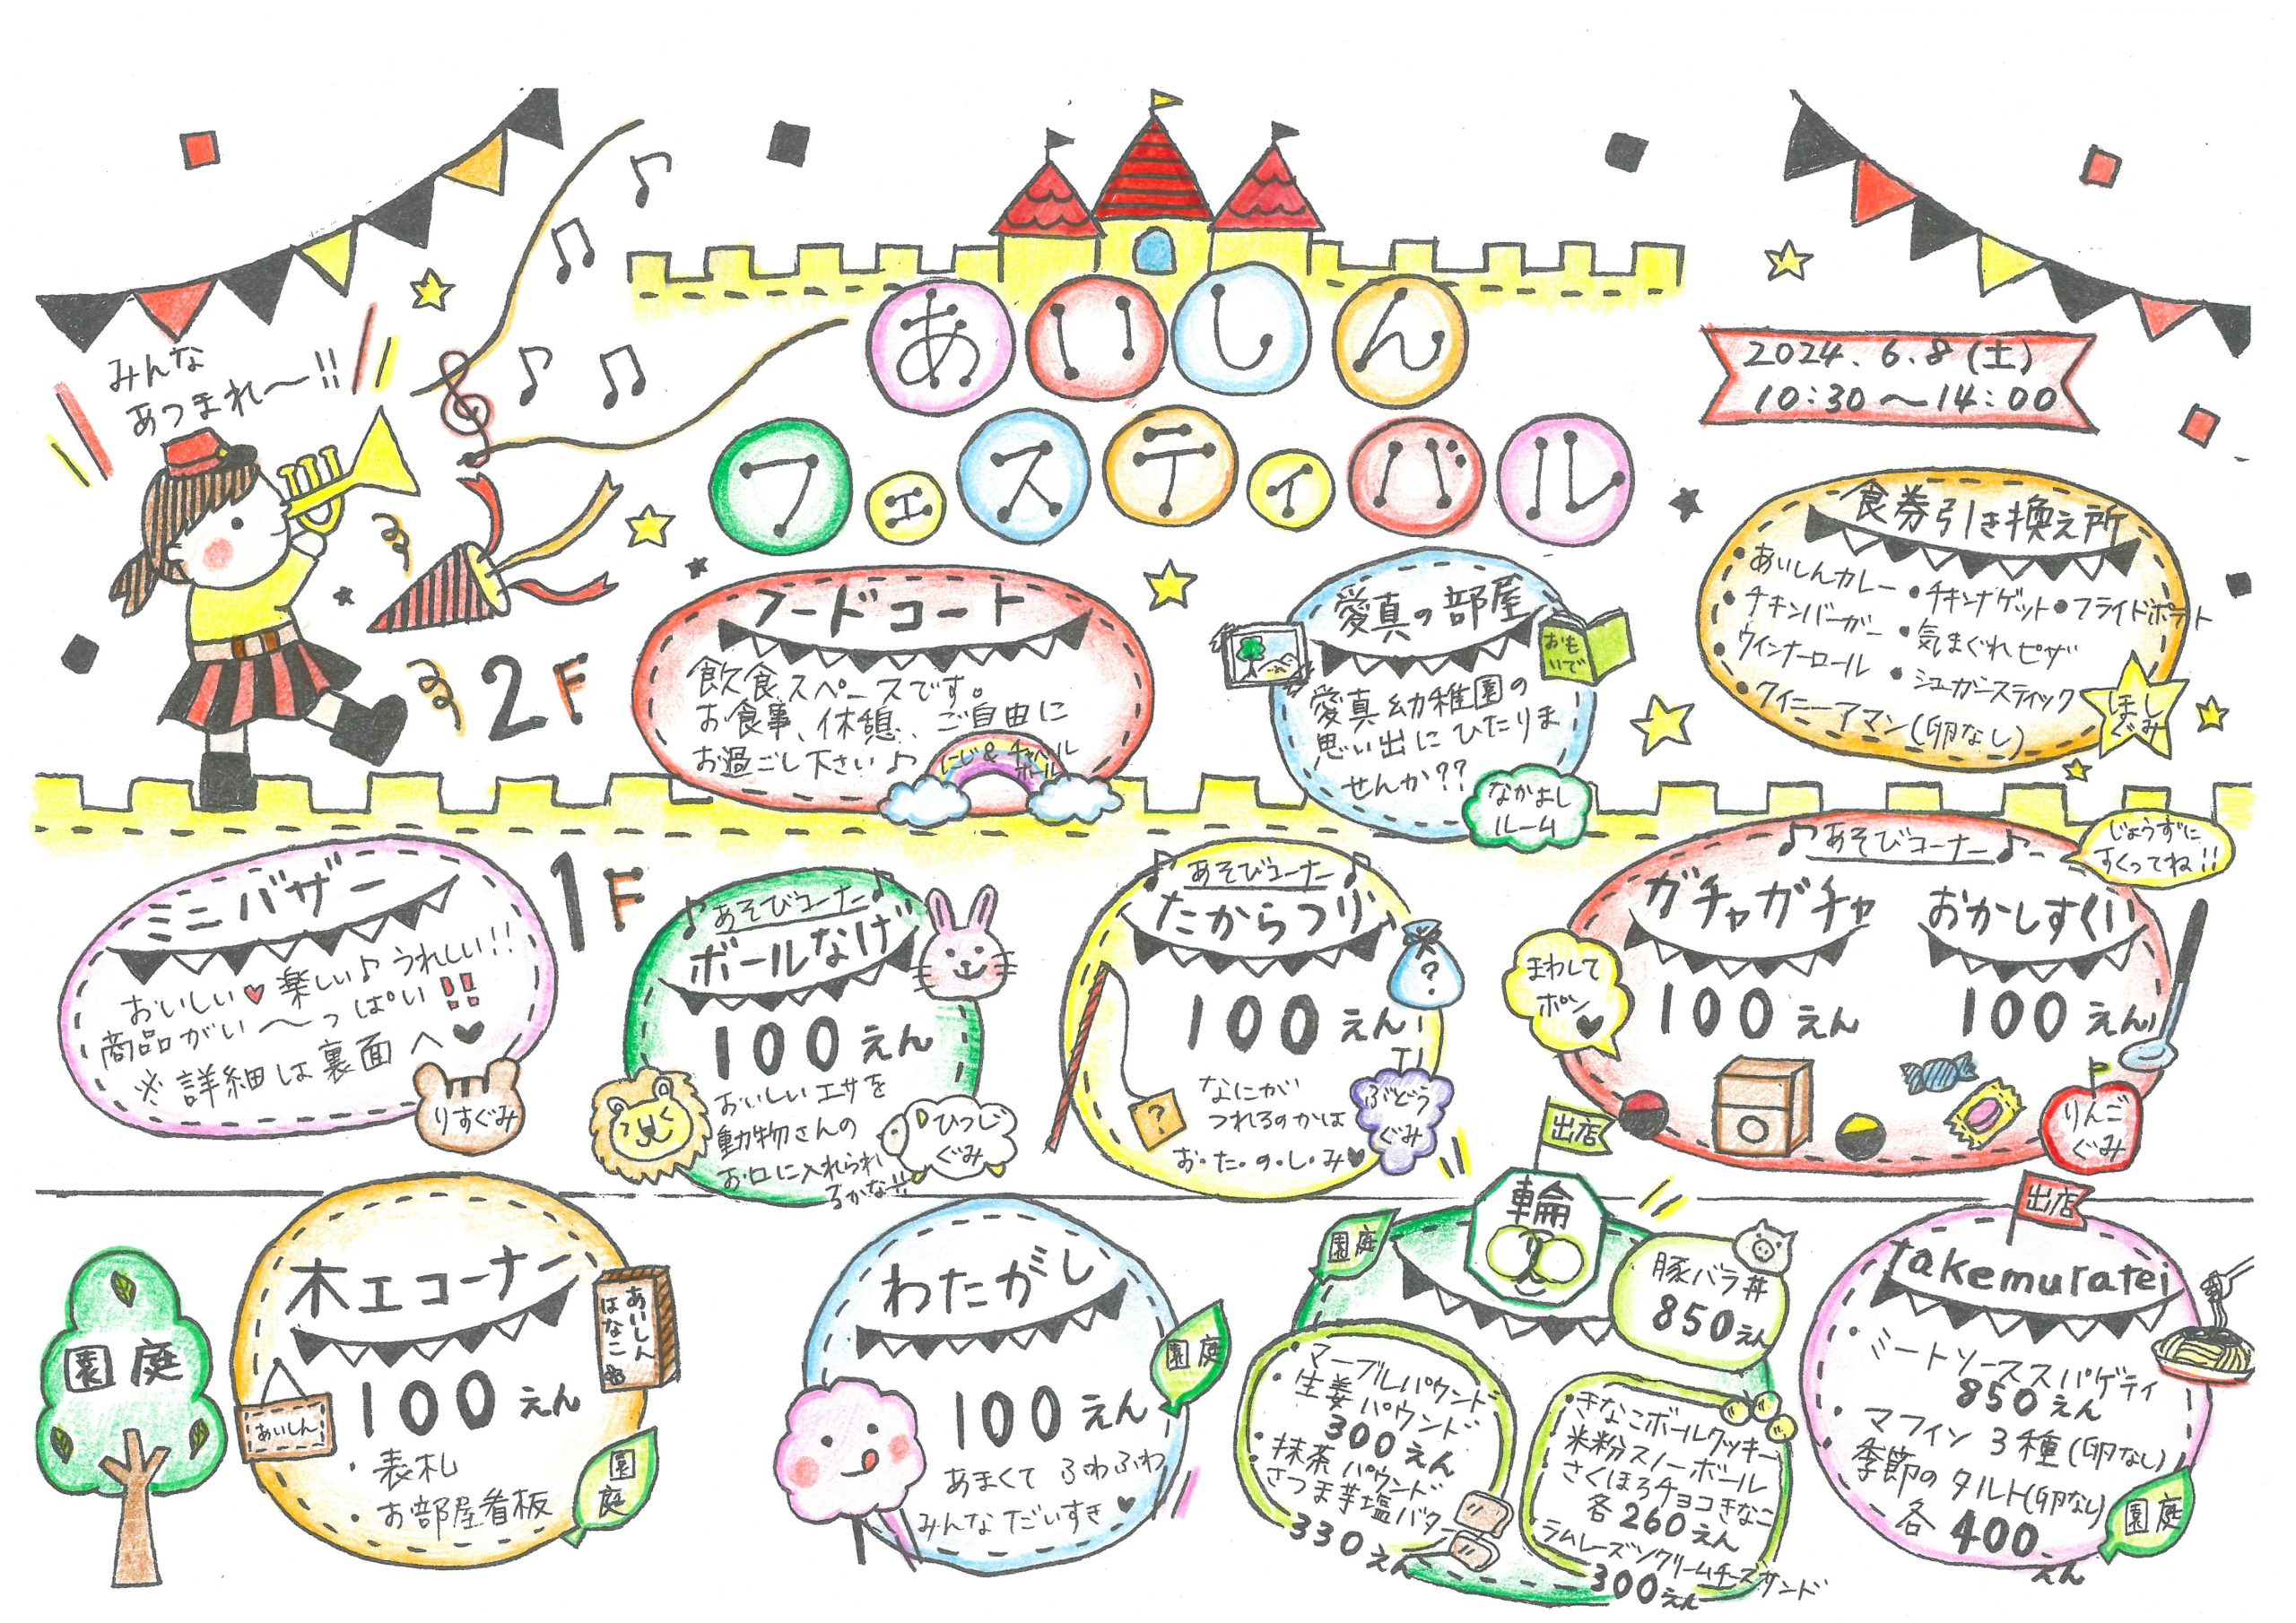 みんな
あつまれ〜!!
あいしん
フェスティバル
2024.6.8(土)
10:30〜14:00
2F
フードコート
飲食スペースです。
お食事、休憩、ご自由に
お過ごし下さい♪
にじ&チャペル
ホール
愛真の部屋
おも
いで
愛真幼稚園の
思い出にひたりま
せんか??
なかよし
ルーム
食券引き換え所
•あいしんカレー •チキンナゲット •フライドポテト
•チキンバーガー •気まぐれピザ
•ウインナーロール •シュガースティック
•クイニーアマン(卵なし)
ほし
ぐみ
1F
ミニバザー
おいしい♥楽しい♪うれしい!!
商品がい〜っぱい!!
※詳細は裏面へ♥
りすぐみ
♪あそびコーナー♪
ボールなげ
100えん
おいしいエサを
動物さんの
お口に入れられ
るかな!?
ひつじ
ぐみ
♪あそびコーナー♪
たからつり
100えん
?
?
なにが
つれるのかは
お・た・の・し・み♥
ぶどう
ぐみ
♪あそびコーナー♪
じょうずに
すくってね!!
ガチャガチャ
100えん
まわして
ポン♥
おかしすくい
100えん
りんご
ぐみ
園庭
木工コーナー
100えん
・表札
・お部屋看板
あいしん
はなこ
あいしん
園庭
わたがし
100えん
あまくてふわふわ
みんなだいすき♥
園庭
出店
園庭
輪
豚バラ丼
850えん
・マーブルパウンド
・生姜パウンド
300えん
・抹茶パウンド
さつま芋塩バター
330えん
・きなこボールクッキー
米粉スノーボール
さくほろチョコきなこ
各260えん
・ラムレーズンクリームチーズサンド
300えん
出店
takemuratei
・ミートソーススパゲティ
850えん
・マフィン3種(卵なし)
・季節のタルト(卵なし)
各400えん
園庭